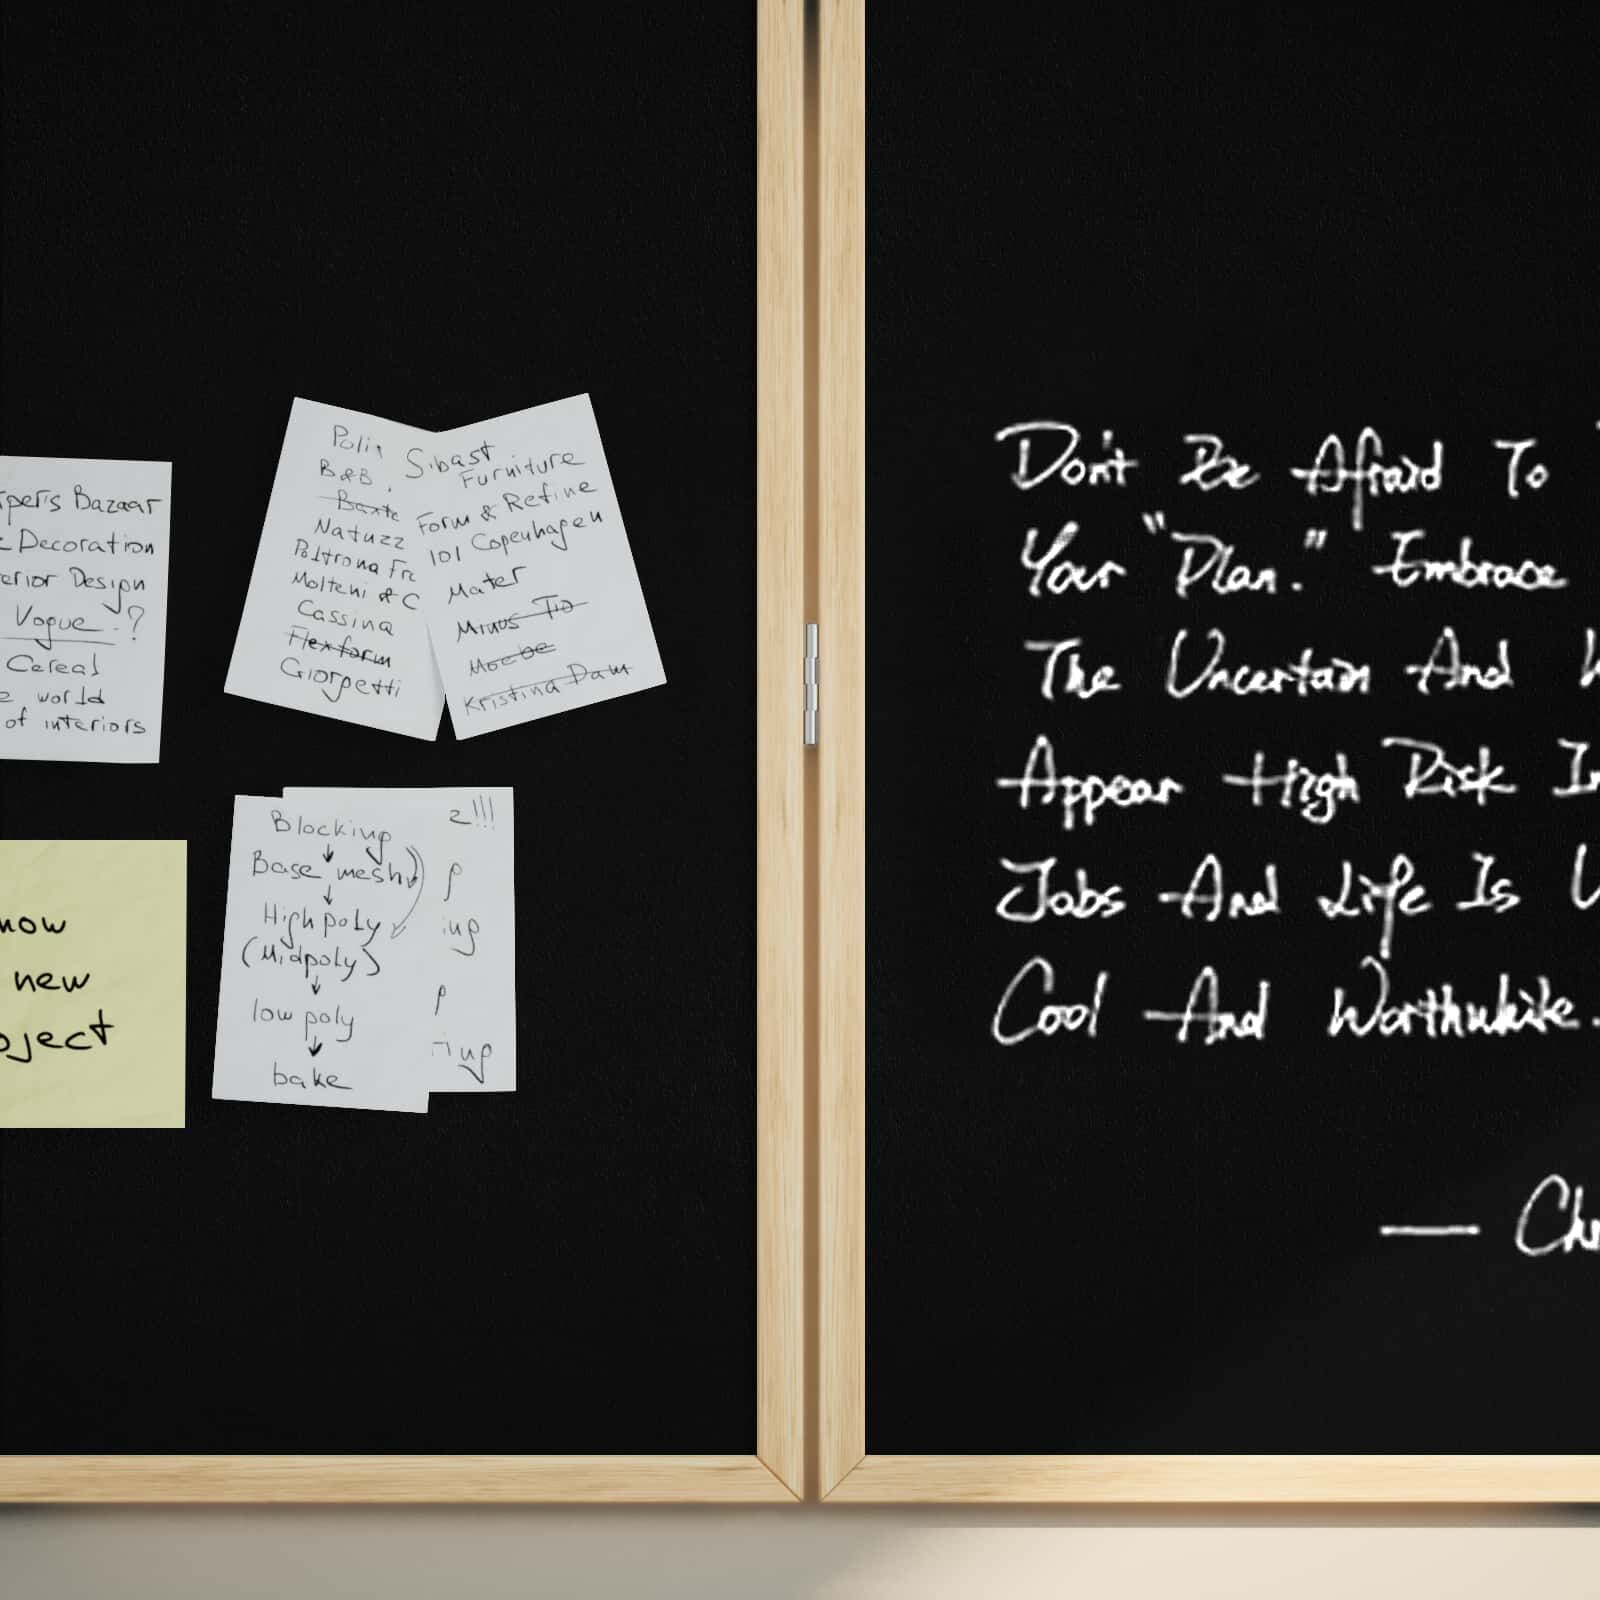 Bazaar
Decoration
Design
Vogue ?
Cereal
world
of interiors
now
new
B&B
Natuzz
Poltrona
Molteni & C
Cassina
Flexform
Giorgetti
Sibast
Furniture
Form & Refine
101 Copenhagen
Mater
Minus Tio
Moebe
Kristina Dam
Blocking
↓
Base mesh
↓
High poly
(Midpoly)
↓
low poly
↓
bake
Don't Be Afraid To
Your "Plan." Embrace
The Uncertain And
Appear High Risk In
Jobs And Life Is
Cool And Worthwhile.
—